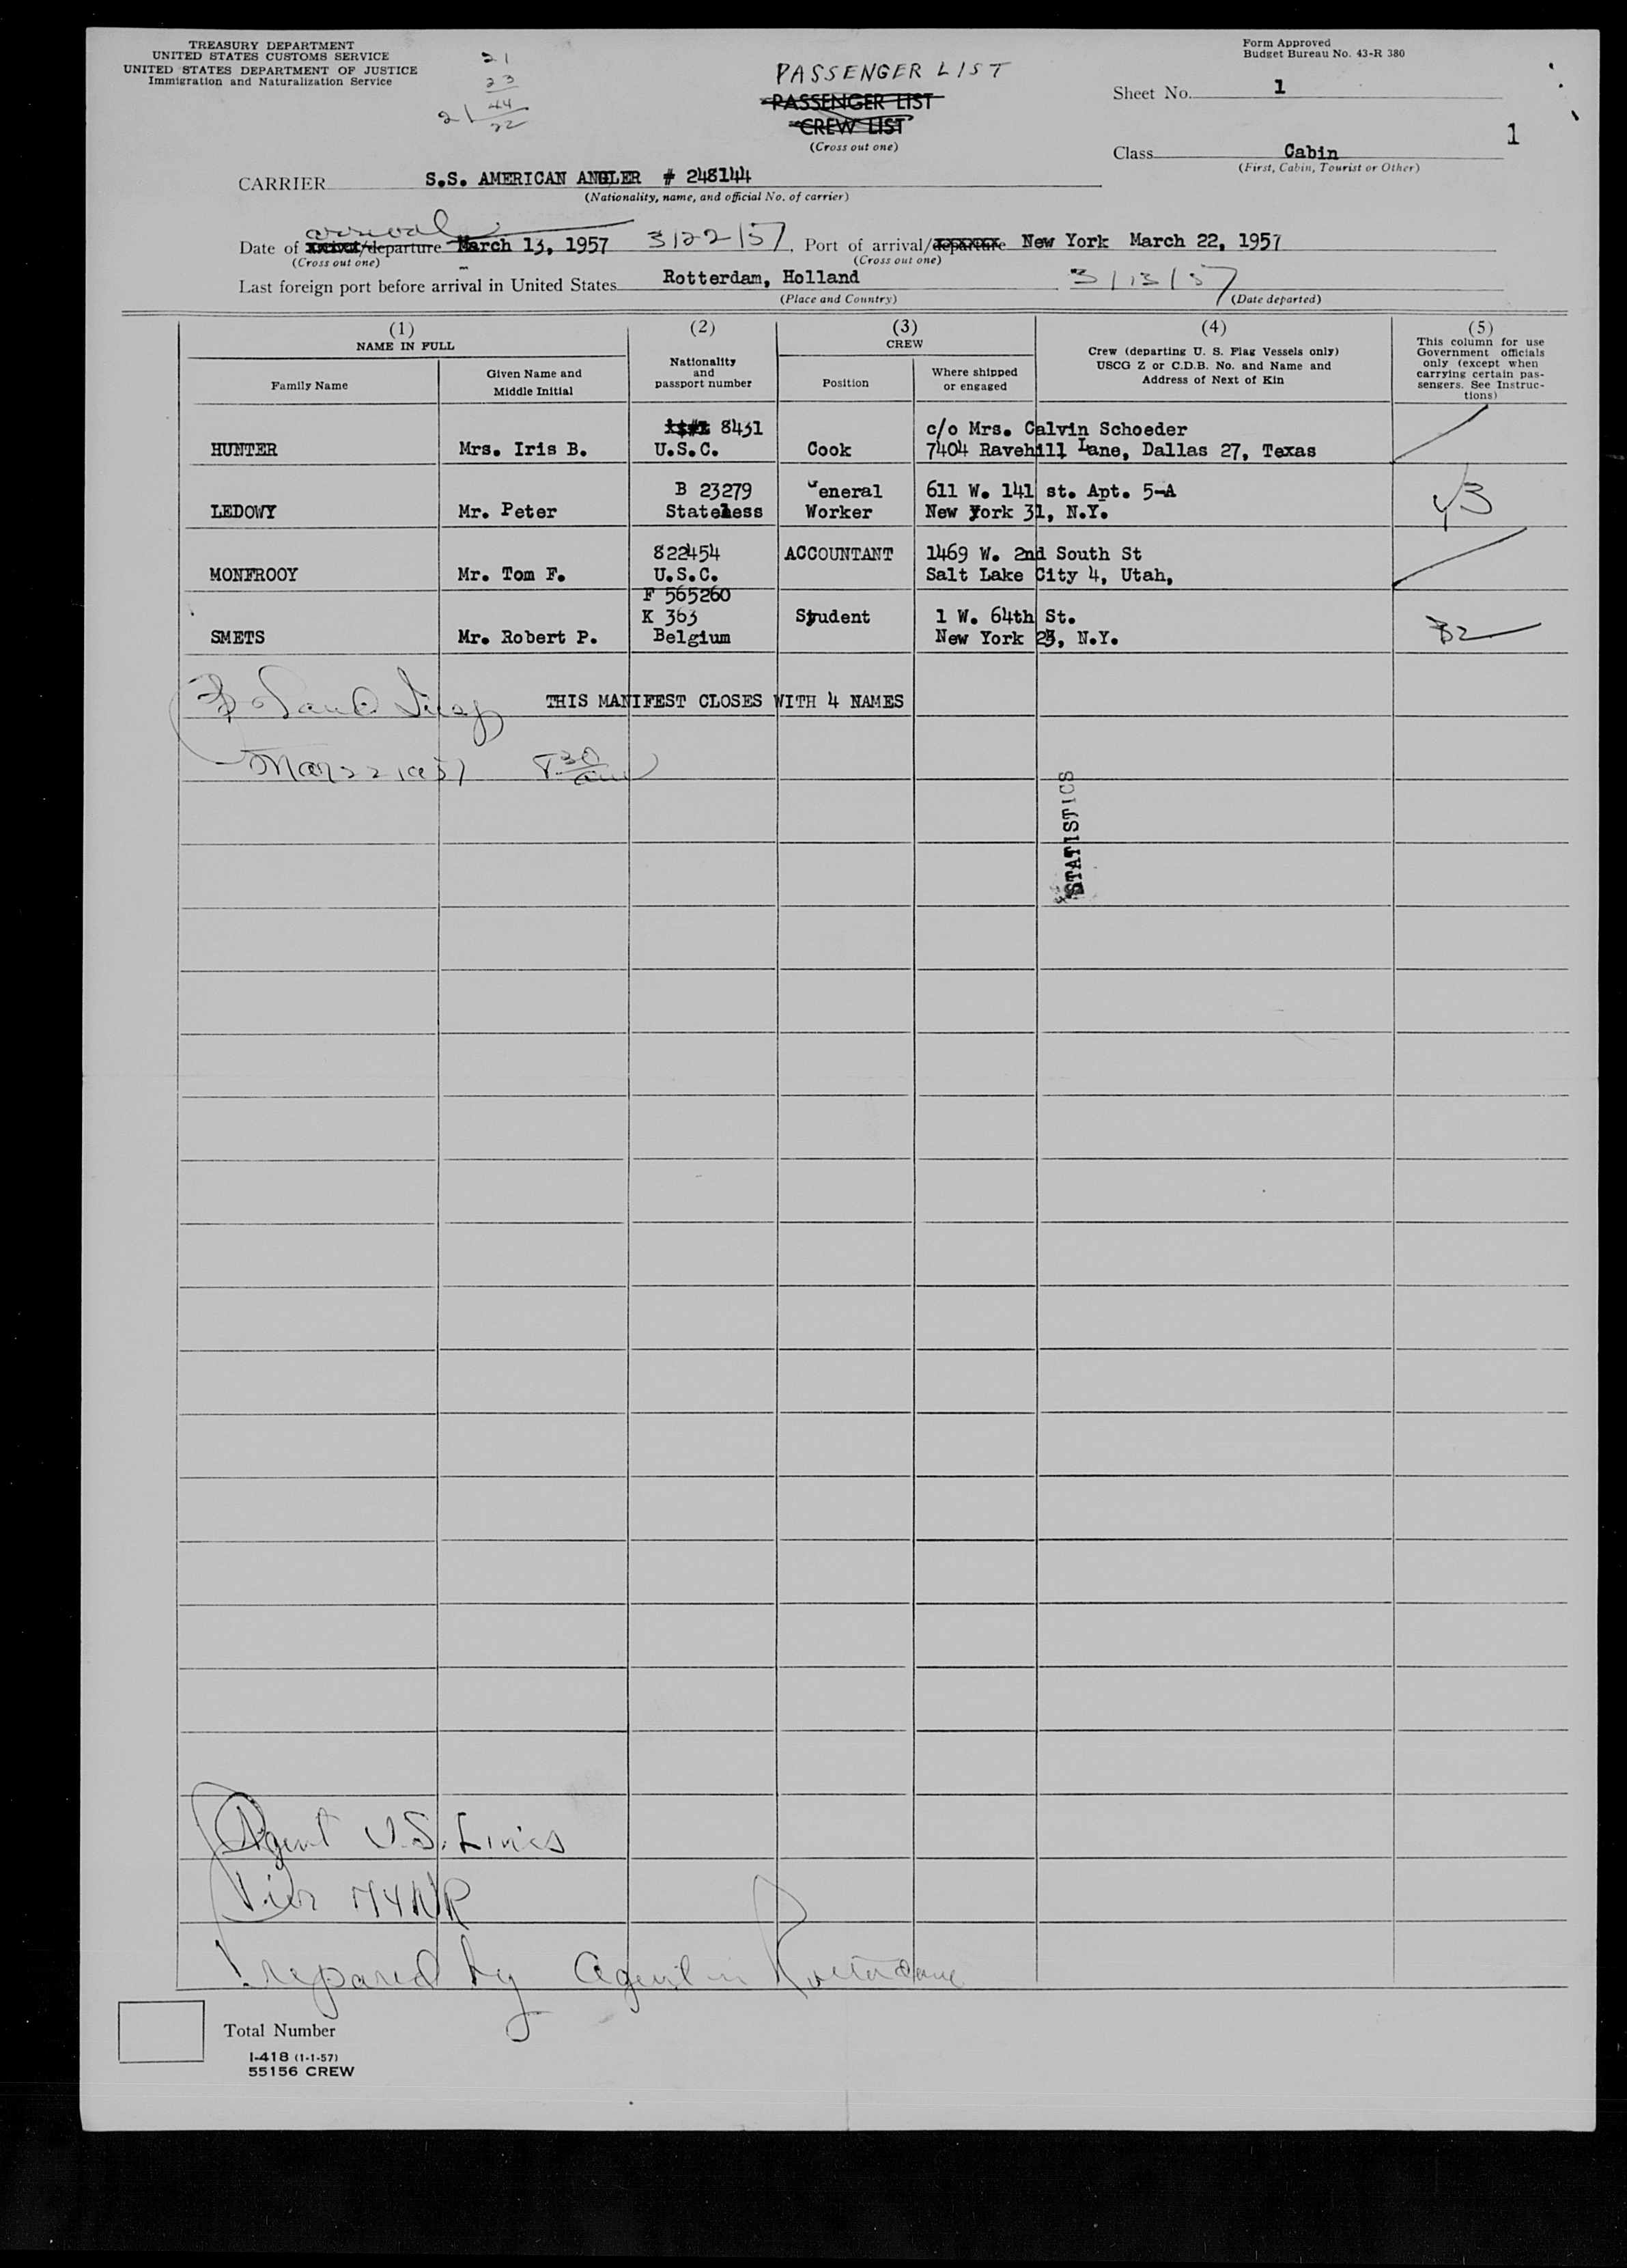 TREASURY DEPARTMENT
UNITED STATES CUSTOMS SERVICE
UNITED STATES DEPARTMENT OF JUSTICE
Immigration and Naturalization Service
21
23
44
22
PASSENGER LIST
PASSENGER LIST
CREW LIST
(Cross out one)
Form Approved
Budget Bureau No. 43-R 380
Sheet No. 1
1
Class Cabin
(First, Cabin, Tourist or Other)
CARRIER S.S. AMERICAN ANGLER # 248144
(Nationality, name, and official No. of carrier)
arrival
Date of arrival/departure March 13, 1957 3/22/57, Port of arrival/departure New York March 22, 1957
(Cross out one) (Cross out one)
Last foreign port before arrival in United States Rotterdam, Holland 3/13/57
(Place and Country) (Date departed)
(1) (2) (3) (4) (5)
NAME IN FULL
Family Name
Given Name and
Middle Initial
Nationality
and
passport number
CREW
Position
Where shipped
or engaged
Crew (departing U. S. Flag Vessels only)
USCG Z or C.D.B. No. and Name and
Address of Next of Kin
This column for use
Government officials
only (except when
carrying certain pas-
sengers. See Instruc-
tions)
8431 c/o Mrs. Calvin Schoeder
HUNTER Mrs. Iris B. U.S.C. Cook 7404 Ravehill Lane, Dallas 27, Texas
B 23279 General 611 W. 141 st. Apt. 5-A
LEDOWY Mr. Peter Stateless Worker New York 31, N.Y.
822454 ACCOUNTANT 1469 W. 2nd South St
MONFROOY Mr. Tom F. U.S.C. Salt Lake City 4, Utah,
F 565260
K 363 Student 1 W. 64th St.
SMETS Mr. Robert P. Belgium New York 23, N.Y. B2
THIS MANIFEST CLOSES WITH 4 NAMES
Mar 22 1957 8 30 am
STATISTICS
Agent U.S. Lines
Pier 74 NR
Prepared by agent in Rotterdam
Total Number
I-418 (1-1-57)
55156 CREW